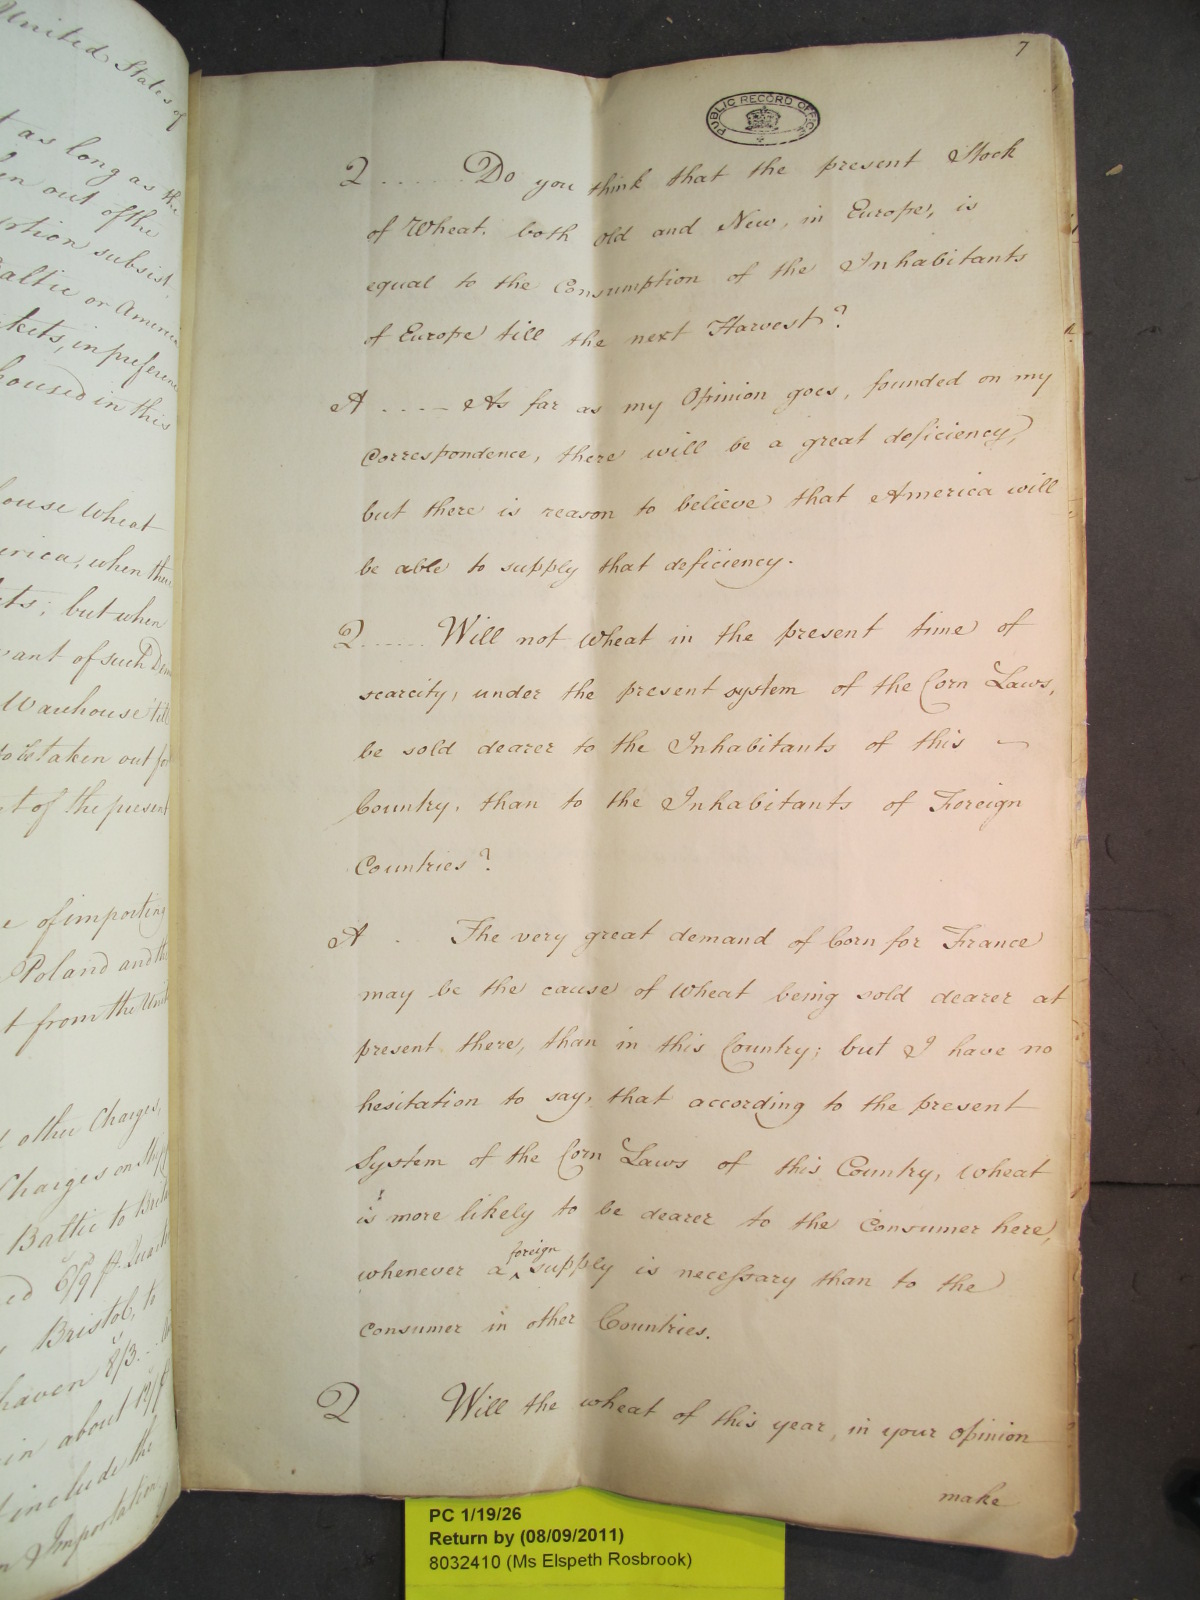 United States of
as long as the
en out of the
ortion subsist
Baltic or Americ
kets, in preferen
housed in this
house Wheat
erica, when the
ets; but when
want of such Dem
Warehouse till
to be taken out for
t of the present
e of importing
Poland and the
t from the Unit
other Charges,
Charges on Ship
Baltic to Brit
ed 6/9 Pr. Quart
Bristol, to
haven 8/3
in about 19/
include the
Importation
7
PUBLIC RECORD OFFICE
Q ..... Do you think that the present Stock
of Wheat, both Old and New, in Europe, is
equal to the Consumption of the Inhabitants
of Europe till the next Harvest?
A .... As far as my Opinion goes, founded on my
Correspondence, there will be a great deficiency,
but there is reason to believe that America will
be able to supply that deficiency.
Q ..... Will not Wheat in the present time of
scarcity, under the present system of the Corn Laws,
be sold dearer to the Inhabitants of this —
Country, than to the Inhabitants of Foreign
Countries?
A . The very great demand of Corn for France
may be the cause of Wheat being sold dearer at
present there, than in this Country; but I have no
hesitation to say, that according to the present
System of the Corn Laws of this Country, Wheat
is more likely to be dearer to the Consumer here,
whenever a foreign supply is necessary than to the
consumer in other Countries.
Q Will the wheat of this year, in your opinion
make
PC 1/19/26
Return by (08/09/2011)
8032410 (Ms Elspeth Rosbrook)